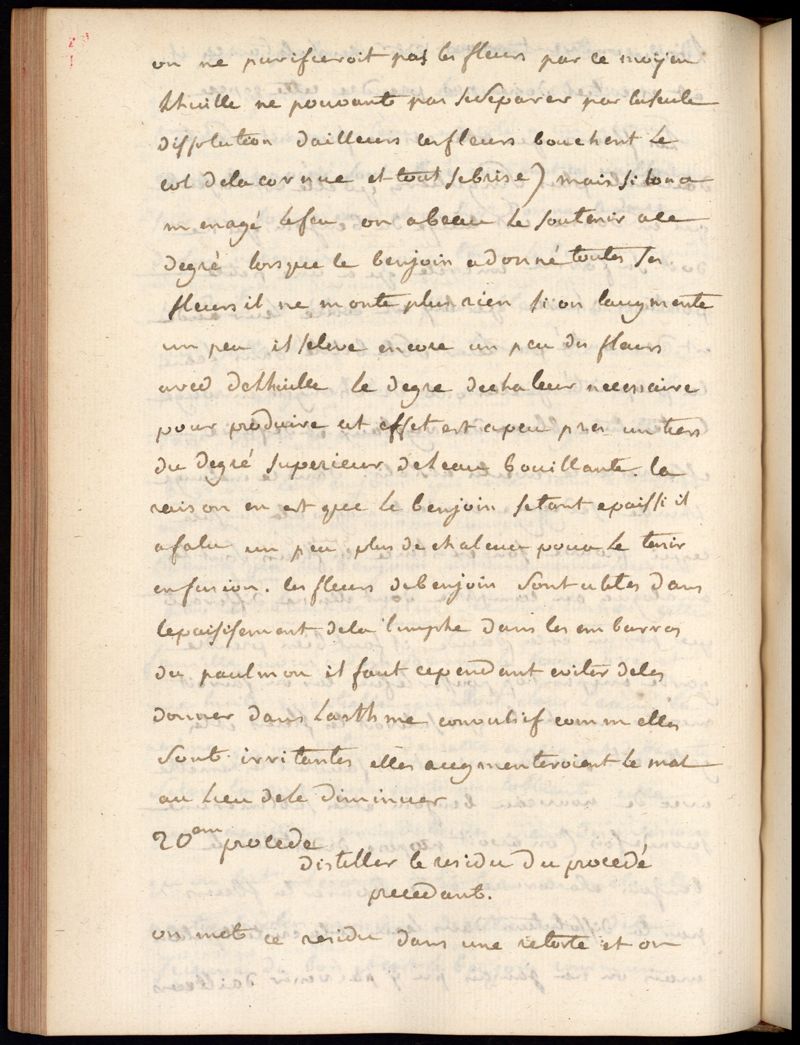 on ne purifieroit pas les fleurs par ce moyen
lhuille ne pouvant pas seseparer par laseule
dissolution dailleurs cesfleurs bouchent le
col delacornue et tout sebrise) mais si lon a
menagé lefeu on abeau le soutenir ace
degré lorsque le benjoin adonné toutes ses
fleurs il ne monte plus rien si on laugmente
un peu il seleve encore un peu des fleurs
avec delhuille le degré dechaleur necessaire
pour produire cet effet est apeu pres un tiers
du degré superieur deleau bouillante. la
raison en est que le benjoin setant epaissi il
afalu un peu plus de chaleur pour le tenir
enfusion. les fleurs debenjoin sont utiles dans
lepaisissement dela limphe dans les embarras
du paulmon il faut cependant eviter deles
donner dans lasthme convulsif comm elles
sont irritantes elles augmenteroient le mal
au lieu dele diminuer
20em procede
distiller le residu du procedé
precedant.
on met ce residu dans une retorte et on